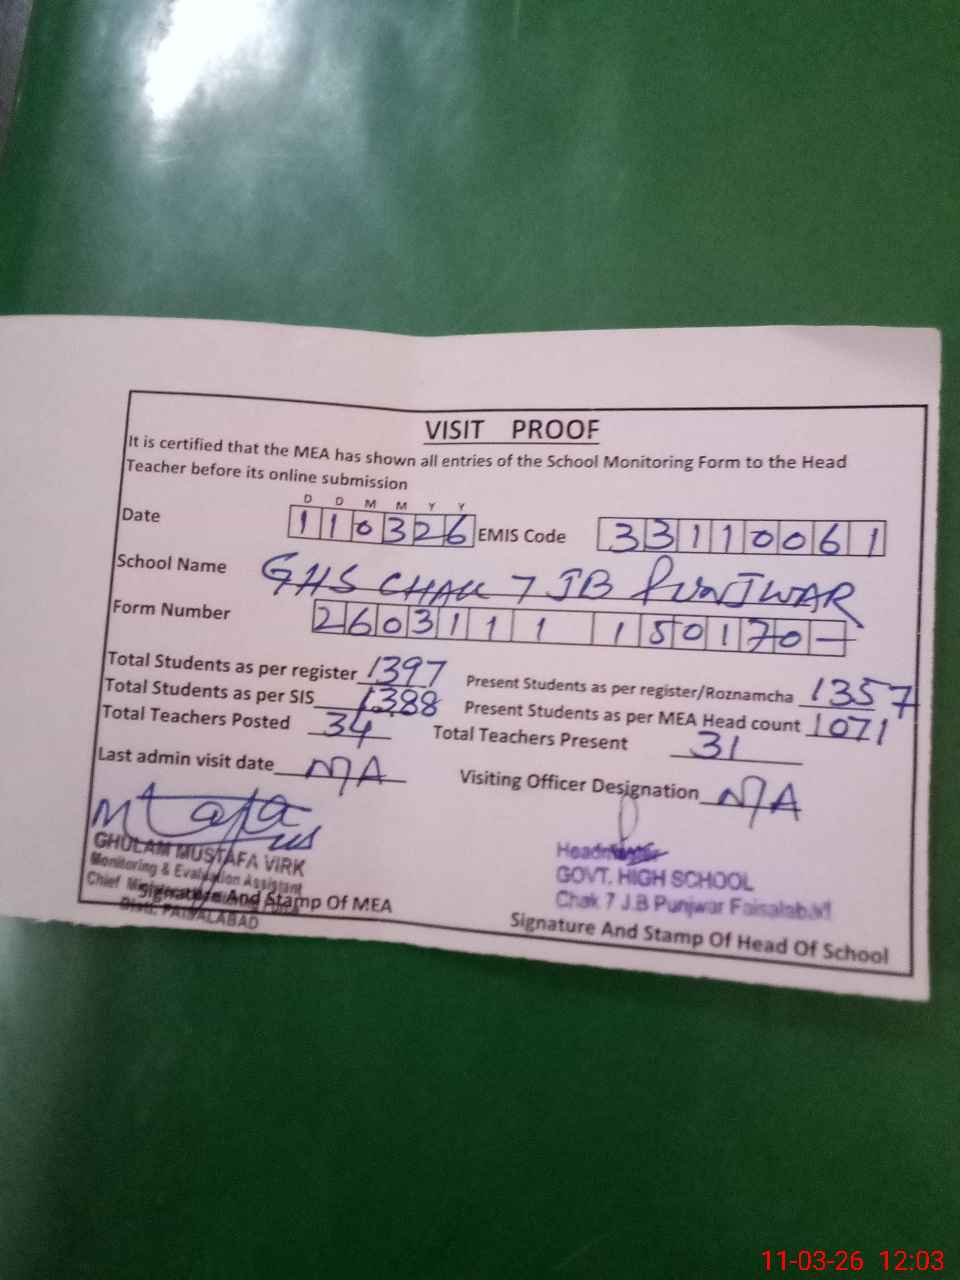 VISIT PROOF
It is certified that the MEA has shown all entries of the School Monitoring Form to the Head
Teacher before its online submission
D D M M Y Y
Date 110326 EMIS Code 33110061
School Name GHS CHAK 7 JB PUNJWAR
Form Number 2603111 150170-
Total Students as per register 1397 Present Students as per register/Roznamcha 1357
Total Students as per SIS 1388 Present Students as per MEA Head count 1071
Total Teachers Posted 34 Total Teachers Present 31
Last admin visit date N/A Visiting Officer Designation N/A
GHULAM MUSTAFA VIRK
Monitoring & Evaluation Assistant
Chief
Distt. FAISALABAD
Signature And Stamp Of MEA
GOVT. HIGH SCHOOL
Chak 7 J.B Punjwar Faisalabad
Signature And Stamp Of Head Of School
11-03-26 12:03